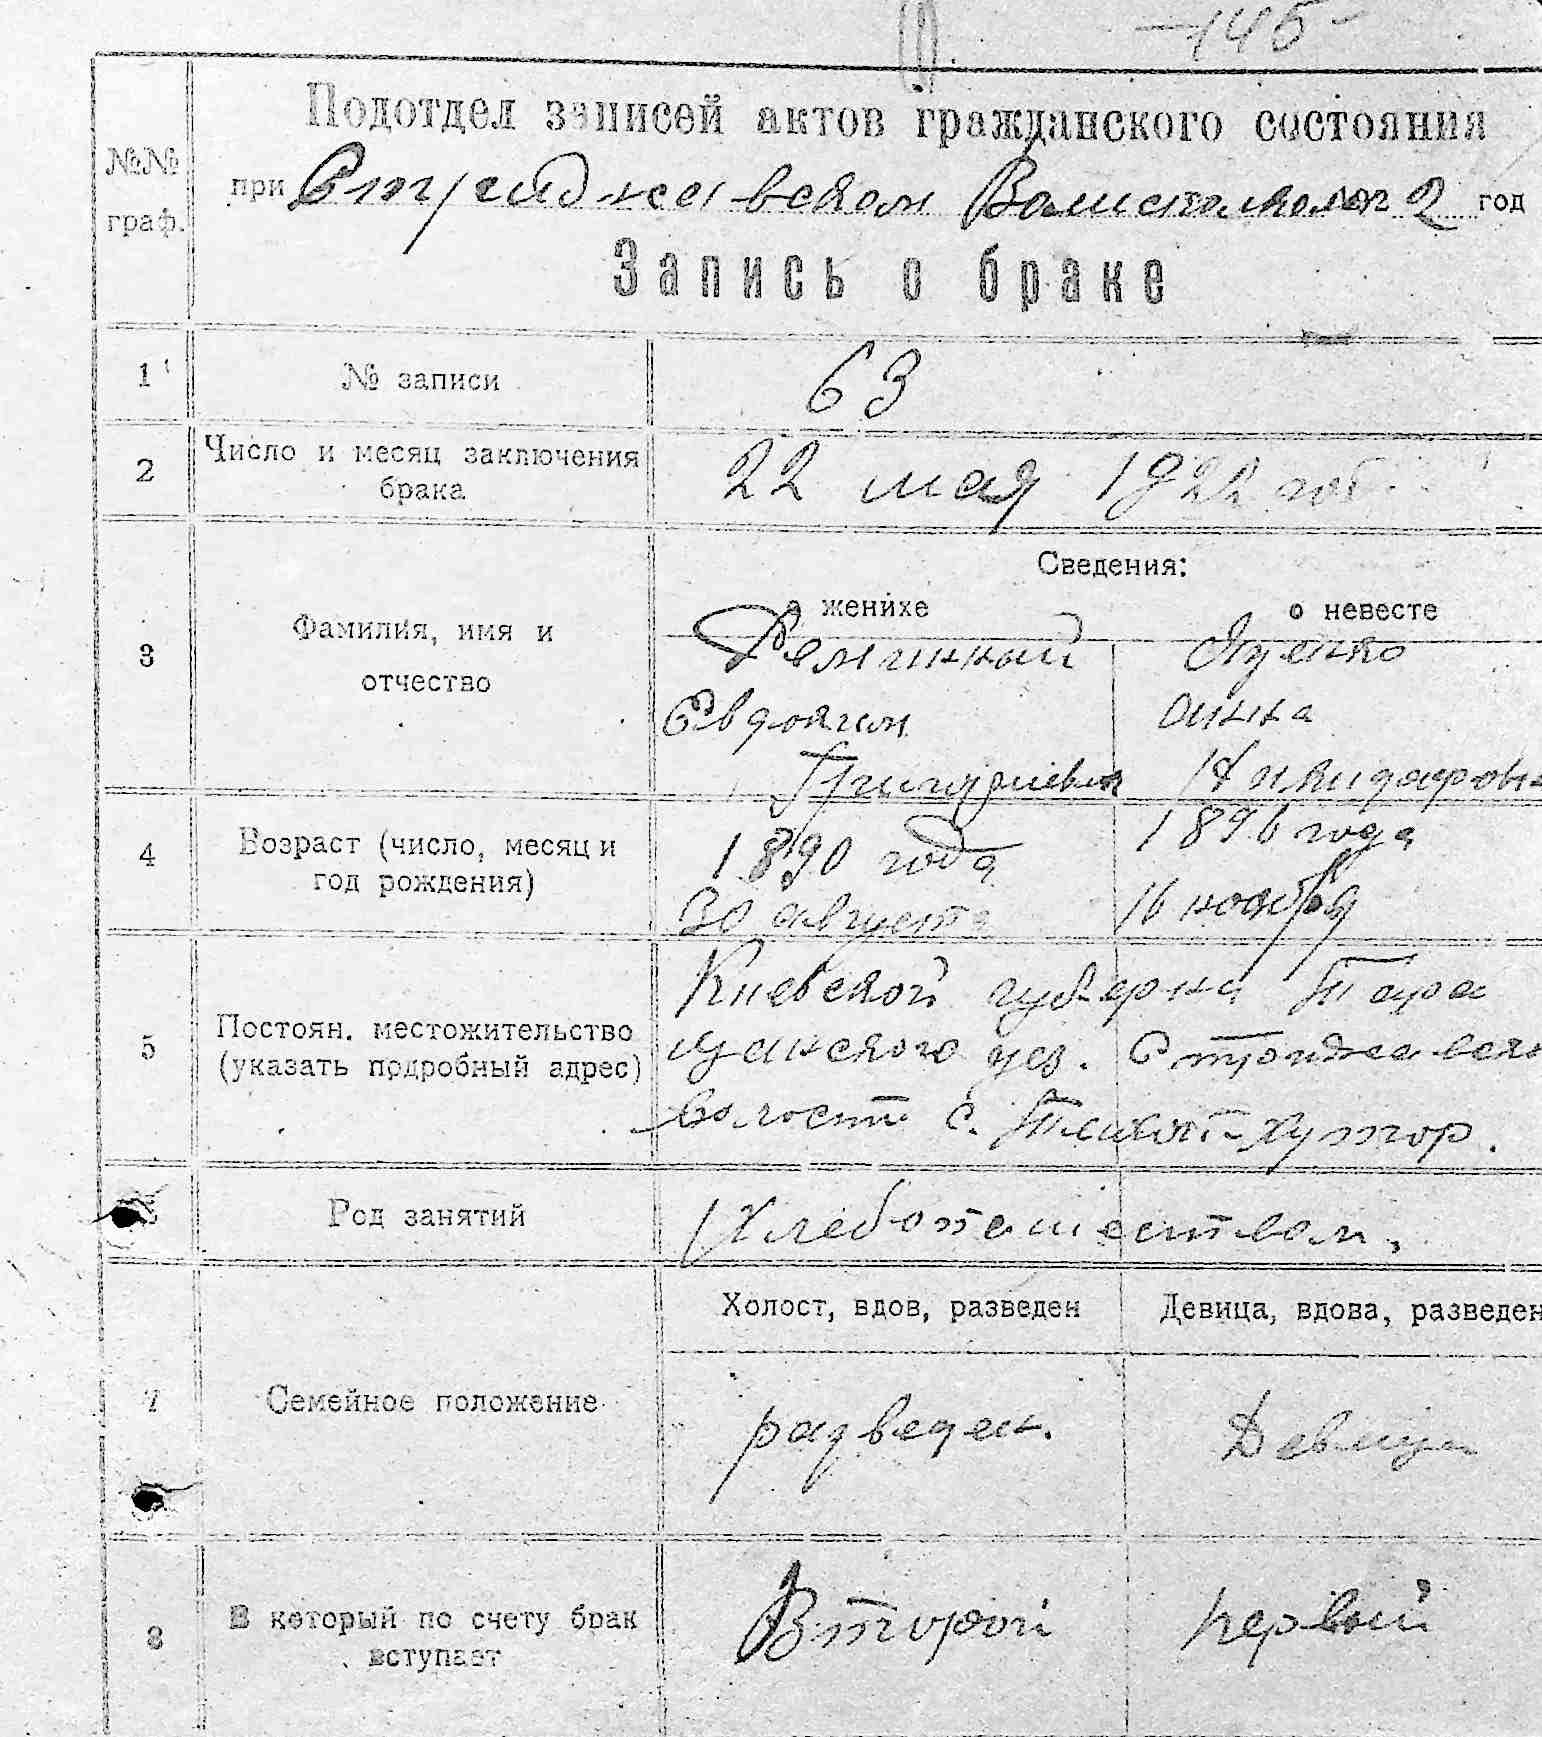 -145-
Подотдел записей актов гражданского состояния
№№ граф.
при Стрижавском 2 год
Запись о браке
1 № записи 63
2 Число и месяц заключения брака 22 мая 1922 год
Сведения:
о женихе о невесте
3 Фамилия, имя и отчество
Евдоким Анна
Григориевич
4 Возраст (число, месяц и год рождения)
1890 года 1896 года
30 августа 16 ноября
5 Постоян. местожительство (указать подробный адрес)
Киевской губерни Тара
щанского уез.
волости с. хутор.
Род занятий Хлебопашеством.
Холост, вдов, разведен Девица, вдова, разведен
7 Семейное положение разведен. Девица
8 В который по счету брак вступает Второй первый